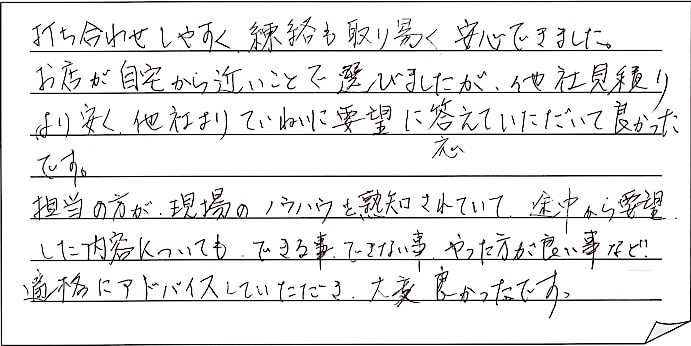 打ち合わせしやすく、練絡も取り易く、安心できました。
お店が自宅から近いことで選びましたが、他社見積り
より安く、他社よりていねいに要望に答えていただいて良かった
応
です。
担当の方が、現場のノウハウを熟知されていて、途中から要望
した内容についても、できる事、できない事、やった方が良い事など、
適格にアドバイスしていただき、大変良かったです。